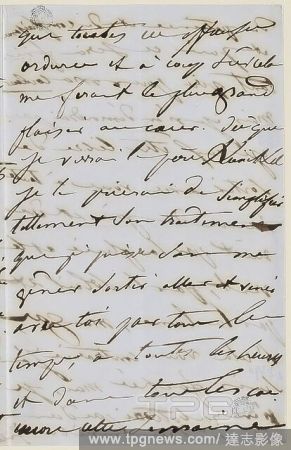 que toutes ces affaires
ordure et à coup
me feront le plus grand
plaisir au cœur. Dès que
je verrai le père
je le prierai de simplifier
tellement son traitement
que je puisse sans me
gêner sortir aller et venir
avec toi par tous les
temps, à toutes les heures
et dans tous les
cette semaine
www.tpgnews.com | 達志影像